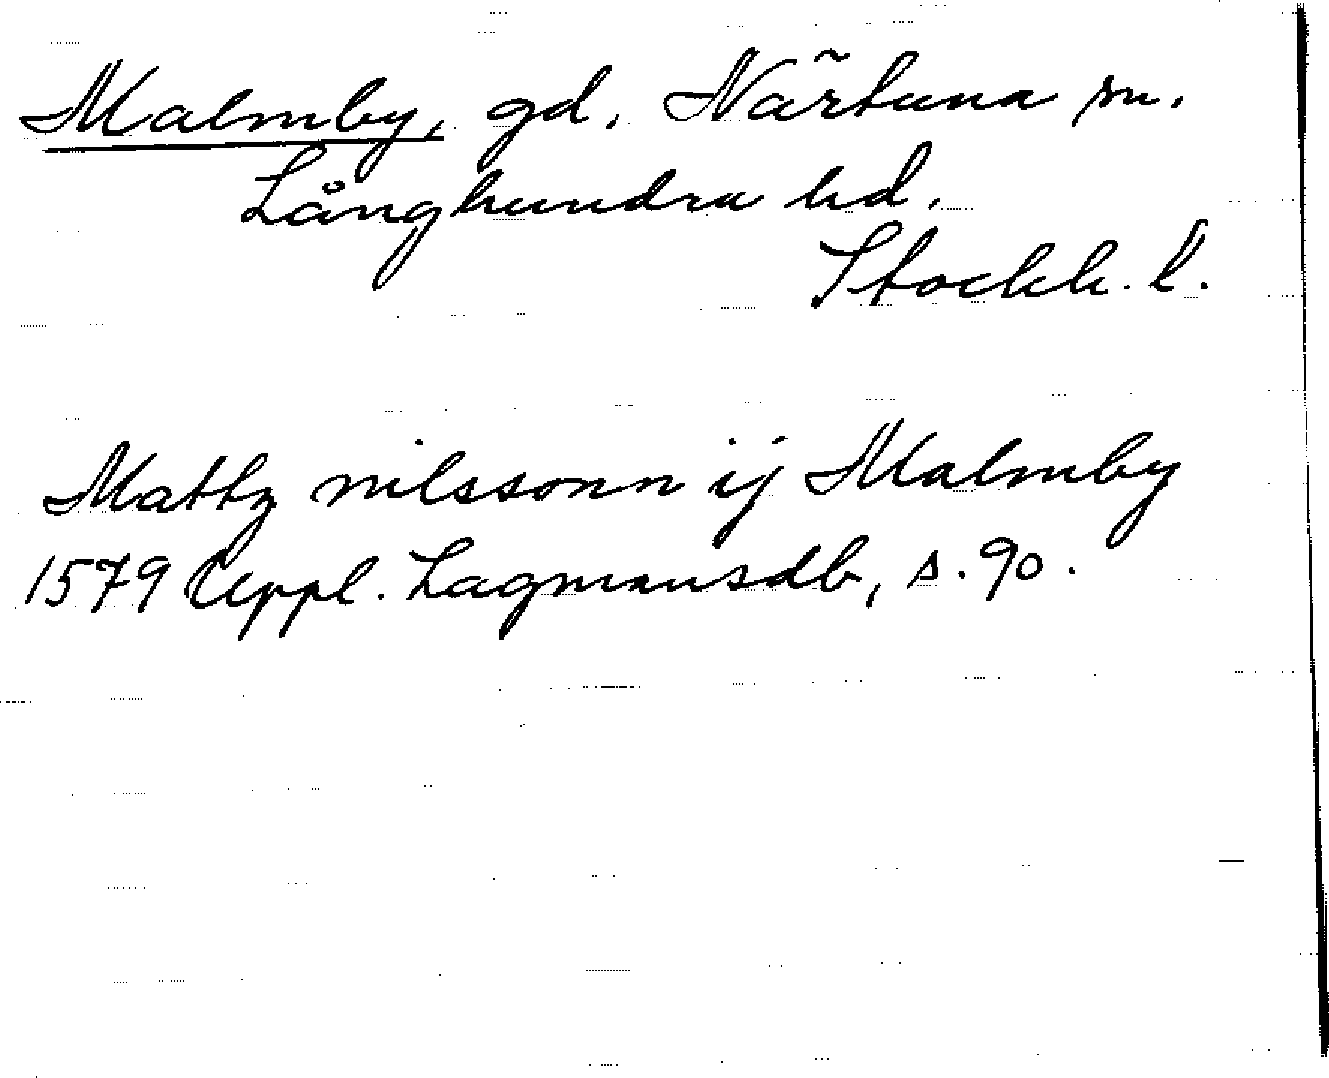 Malmby, gd, Närtuna sn.
Långhundra hd.
Stockh. l.
Mattz nilssonn ij Malmby
1579 Uppl. Lagmansdb, s. 90.